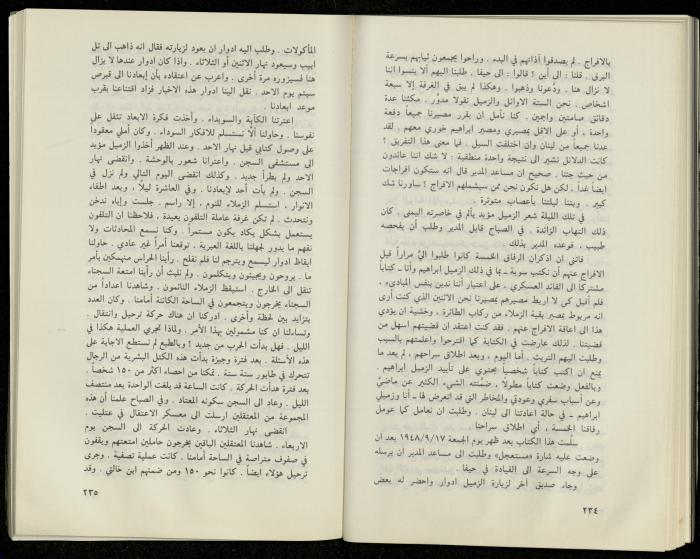 بالافراج . لم يصدقوا آذانهم في البدء . وراحوا يجمعون ثيابهم بسرعة
البرق . قلنا : الى أين ؟ قالوا : الى حيفا . طلبنا اليهم ألا ينسوا اننا
لا نزال هنا . ودّعونا وذهبوا . وهكذا لم يبق في الغرفة إلا سبعة
اشخاص . نحن الستة الاوائل والزميل نقولا مدوّر . مكثنا عدة
دقائق صامتين واجمين . كنا نأمل ان يقرر مصيرنا جميعاً دفعة
واحدة ، أو على الاقل بمصيري ومصير ابراهيم خوري معهم . لقد
عدنا جميعاً من لبنان وان اختلفت السبل . فما معنى هذا التفريق ؟
كانت الدلائل تشير الى نتيجة واحدة منطقية : لا شك اننا عائدون
من حيث جئنا . صحيح ان مساعد المدير قال انه ستكون افراجات
ايضاً غداً ، لكن هل نكون نحن ممن سيشملهم الافراج ؟ ساورنا شك
كبير . وبتنا ليلتنا بأعصاب متوترة .
في تلك الليلة شعر الزميل مؤيد بألم في خاصرته اليمنى . كان
ذلك التهاب الزائدة . في الصباح قابل المدير وطلب أن يفحصه
طبيب ، فوعده المدير بذلك .
فاتني ان اذكر ان الرفاق الخمسة كانوا طلبوا اليّ مراراً قبل
الافراج عنهم أن نكتب سوية ـ بما في ذلك الزميل ابراهيم وأنا ـ كتاباً
مشتركاً الى القائد العسكري ، على اعتبار أننا ندين بنفس المبادىء .
فلم أقبل كي لا اربط مصيرهم بمصيرنا نحن الاثنين الذي كنت أرى
انه مربوط بمصير بقية الزملاء من ركاب الطائرة ، وخشية ان يؤدي
هذا الى اعاقة الافراج عنهم . فقد كنت أعتقد ان قضيتهم اسهل من
قضيتنا . لذلك عارضت في الكتابة كما اقترحوا واعلمتهم بالسبب
وطلبت اليهم التريث . أما اليوم ، وبعد اطلاق سراحهم ، لم يعد ما
يمنع ان اكتب كتاباً شخصياً يحتوي على تأييد الزميل ابراهيم .
وبالفعل وضعت كتاباً مطولاً ، ضمّنته الشيء الكثير عن ماضيّ
وعن أسباب سفري وعودتي والمخاطر التي قد أتعرض لها ـ أنا وزميلي
ابراهيم ـ في حالة اعادتنا الى لبنان . وطلبت ان نعامل كما عومل
رفاقنا الخمسة ، أي اطلاق سراحنا .
سلّمت هذا الكتاب بعد ظهر يوم الجمعة ١٩٤٨/٩/١٧ بعد ان
وضعت عليه شارة «مستعجل» وطلبت الى مساعد المدير ان يرسله
على وجه السرعة الى القيادة في حيفا .
وجاء صديق آخر لزيارة الزميل ادوار واحضر له بعض
٢٣٤
المأكولات . وطلب اليه ادوار ان يعود لزيارته فقال انه ذاهب الى تل
ابيب وسيعود نهار الاثنين أو الثلاثاء . واذا كان ادوار عندها لا يزال
هنا فسيزوره مرة أخرى . واعرب عن اعتقاده بأن إبعادنا الى قبرص
سيتم يوم الاحد . نقل الينا ادوار هذه الاخبار فزاد اقتناعنا بقرب
موعد ابعادنا .
اعترتنا الكآبة والسويداء . وأخذت فكرة الابعاد تثقل على
نفوسنا . وحاولنا ألّا نستسلم للافكار السوداء . وكان أملي معقوداً
على وصول كتابي قبل نهار الاحد . وعند الظهر أخذوا الزميل مؤيد
الى مستشفى السجن . واعترانا شعور بالوحشة . وانقضى نهار
الاحد ولم يطرأ جديد . وكذلك انقضى اليوم التالي ولم نزل في
السجن . ولم يأت أحد لإبعادنا . وفي العاشرة ليلاً ، وبعد اطفاء
الانوار ، استسلم الزملاء للنوم ، إلا راسم . جلست وإياه ندخن
ونتحدث . لم تكن غرفة عاملة التلفون بعيدة ، فلاحظنا ان التلفون
يستعمل بشكل يكاد يكون مستمراً . وكنا نسمع المحادثات ولا
نفهم ما يدور لجهلنا باللغة العبرية . توقعنا أمراً غير عادي . حاولنا
ايقاظ ادوار ليسمع ويترجم لنا فلم نفلح . ورأينا الحراس منهمكين بأمر
ما . يروحون ويجيئون ويتكلمون . ولم نلبث أن رأينا امتعة السجناء
تنقل الى الخارج . استيقظ الزملاء النائمون . وشاهدنا اعداداً من
السجناء يخرجون ويتجمعون في الساحة الكائنة أمامنا . وكان العدد
يتزايد بين لحظة وأخرى . ادركنا ان هناك حركة ترحيل وانتقال .
وتساءلنا ان كنا مشمولين بهذا الأمر . ولماذا تجري العملية هكذا في
الليل . فهل بدأت الحرب من جديد ؟ وبالطبع لم نستطع الاجابة على
هذه الأسئلة . بعد فترة وجيزة بدأت هذه الكتل البشرية من الرجال
تتحرك في طابور ستة ستة . تمكنا من احصاء اكثر من ١٥٠ شخصاً .
بعد فترة هدأت الحركة . كانت الساعة قد بلغت الواحدة بعد منتصف
الليل . وعاد الى السجن سكونه المعتاد . وفي الصباح علمنا أن هذه
المجموعة من المعتقلين ارسلت الى معسكر الاعتقال في عتليت .
انقضى نهار الثلاثاء . وعادت الحركة الى السجن يوم
الاربعاء . شاهدنا المعتقلين الباقين يخرجون حاملين امتعتهم ويقفون
في صفوف متراصة في الساحة أمامنا . كانت عملية تصفية . وجرى
ترحيل هؤلاء ايضاً . كانوا نحو ١٥٠ ومن ضمنهم ابن خالتي . وقد
٢٣٥